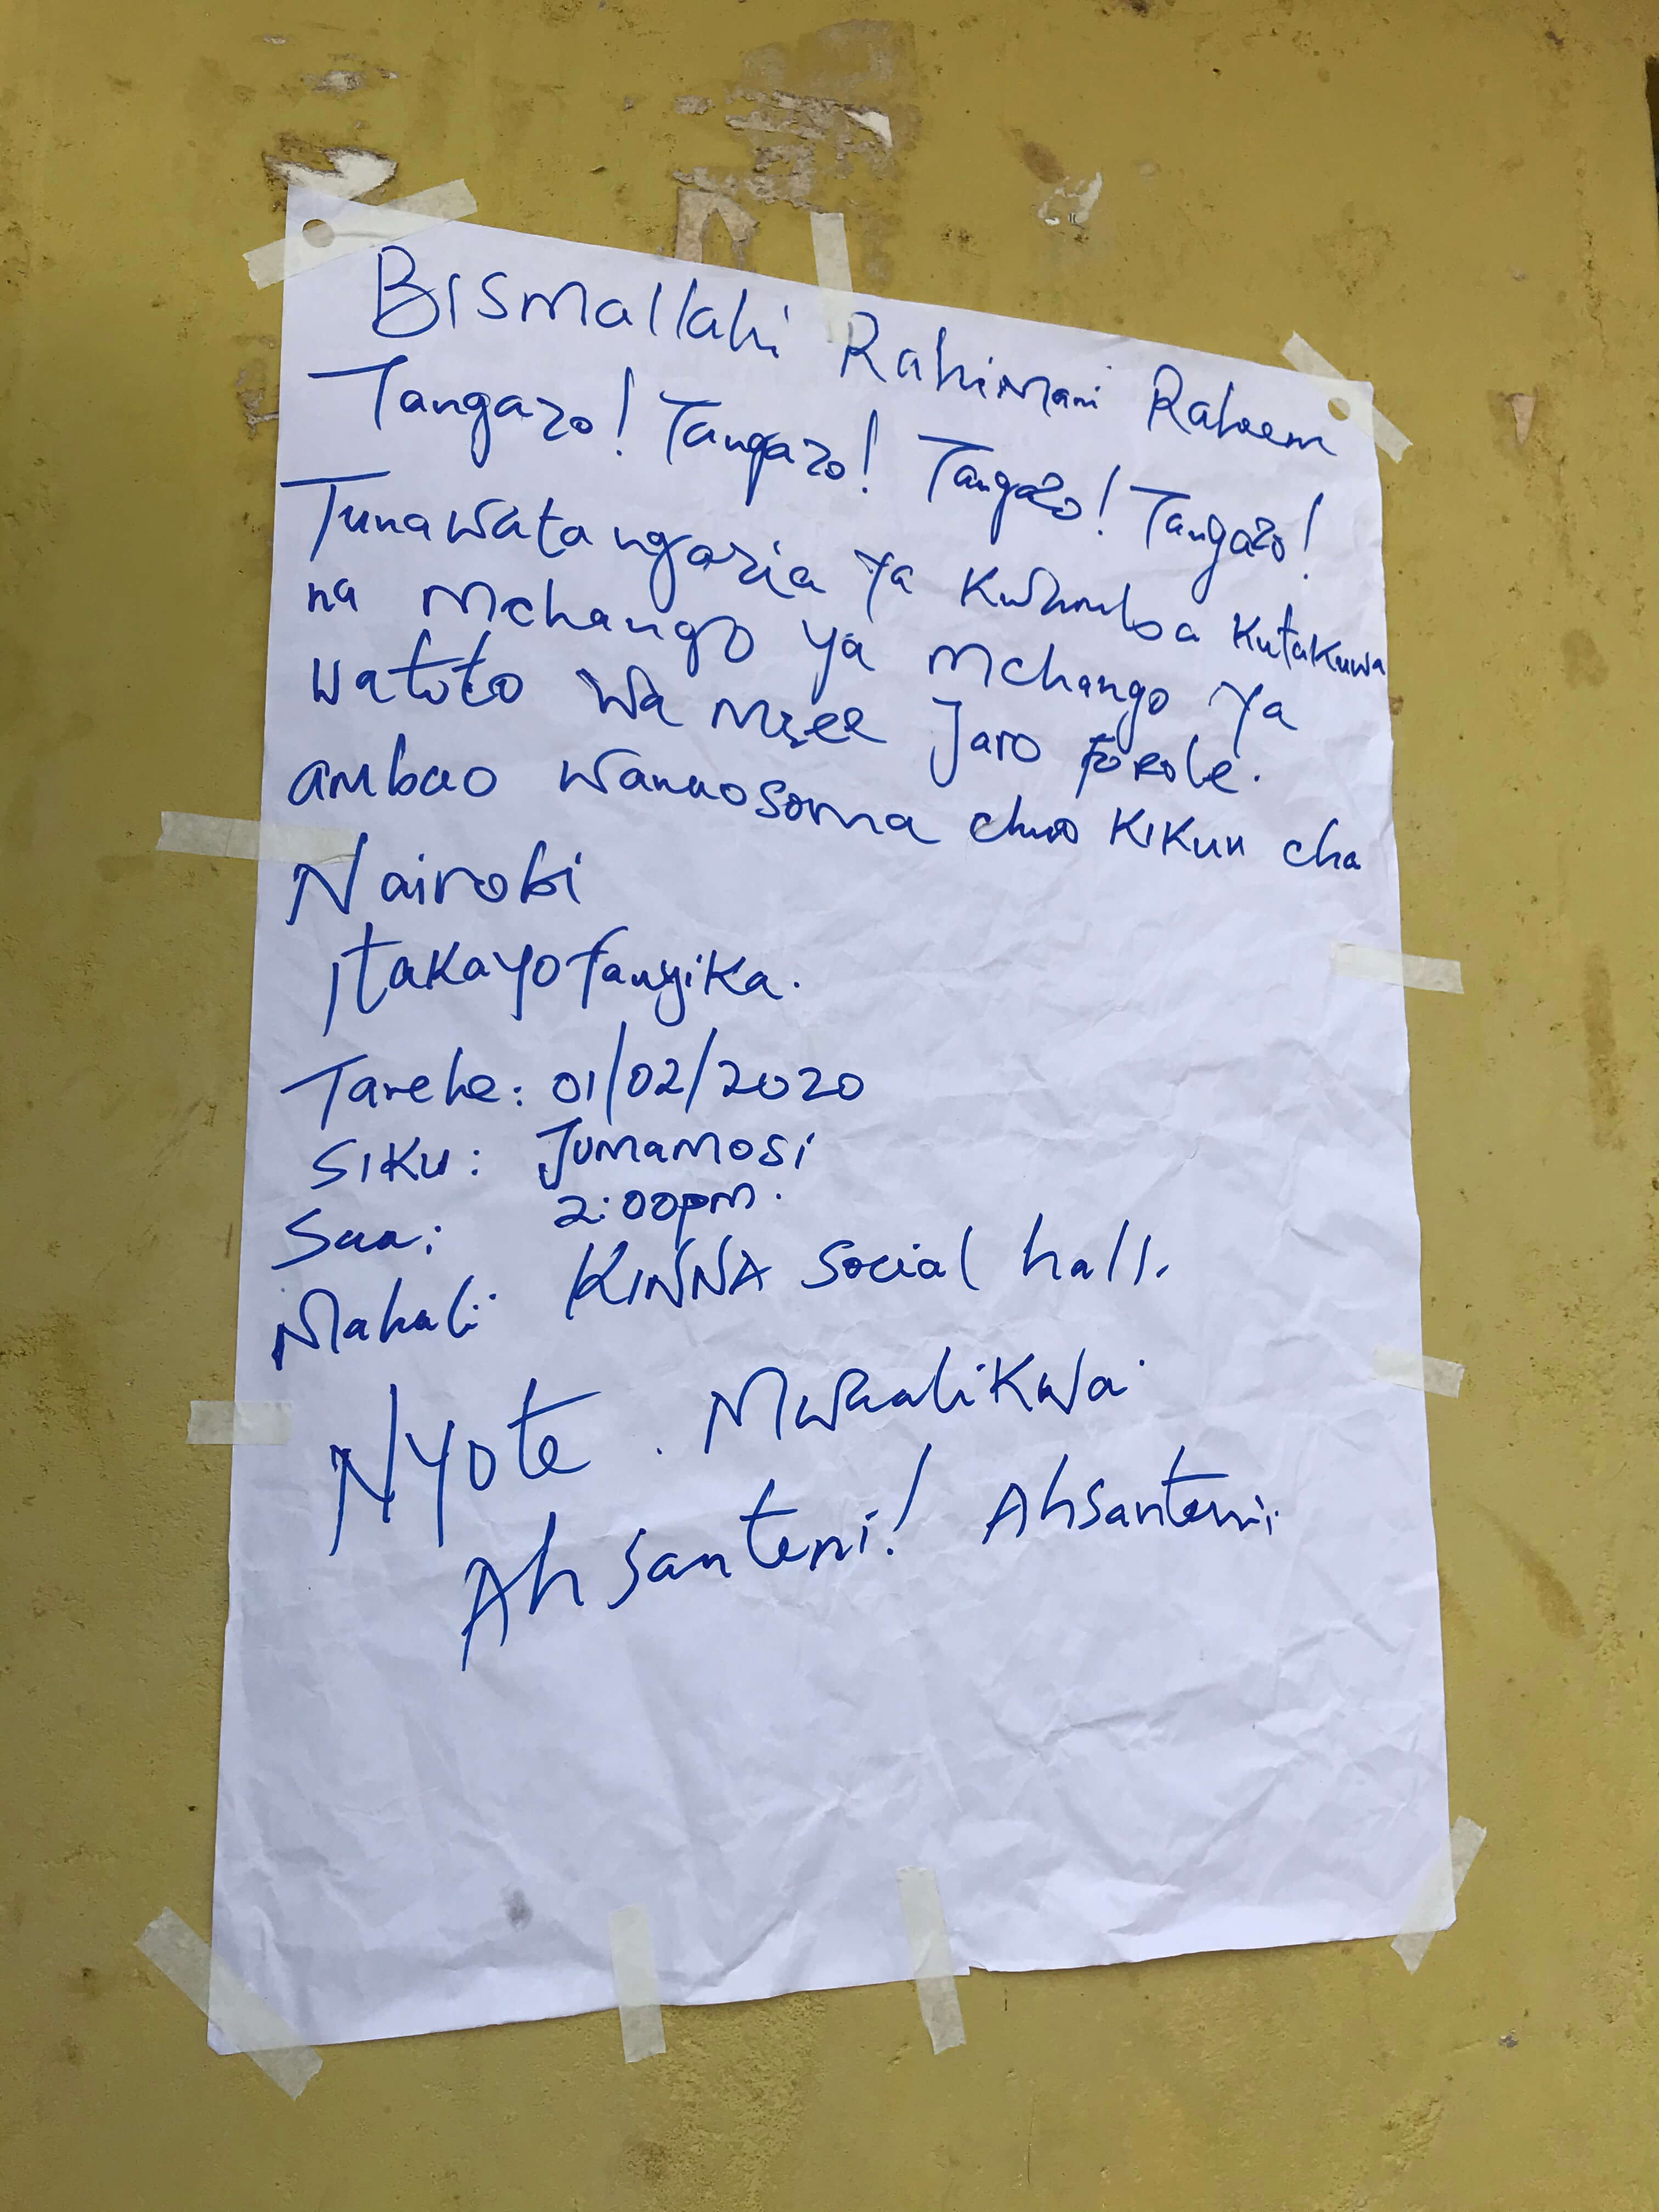 Bismallahi Rahimani Raheem
Tangazo! Tangazo! Tangazo! Tangazo!
Tunawatangazia ya Kwamba Kutakuwa
na Mchango ya Mchango ya
watoto wa mzee Jaro
ambao wanaosoma chuo Kikuu cha
Nairobi
Itakayofanyika.
Tarehe: 01/02/2020
SIKU: Jumamosi
Saa: 2:00pm.
Mahali KINNA Social hall.
Nyote. Mwaalikwa
Ahsanteni! Ahsanteni